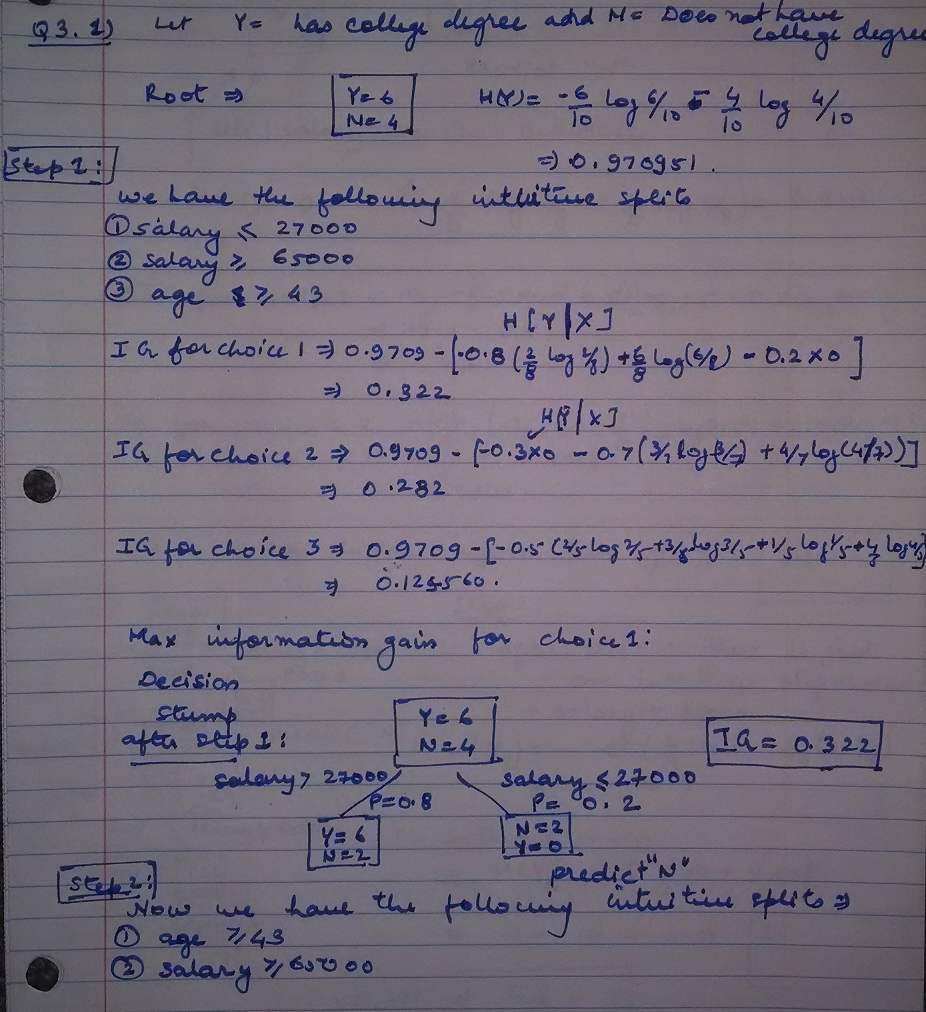 Q3. 1) Let Y= has college degree and N= Does not have
college degree
Root ⇒ Y=6 H(Y)= -6/10 log 6/10 - 4/10 log 4/10
N=4
⇒ 0.970951.
Step 1:
we have the following intuitive splits
① salary ≤ 27000
② salary ≥ 65000
③ age ≥ 43
H[Y|X]
IG for choice 1 ⇒ 0.9709 - [-0.8 (2/8 log 2/8) + 6/8 log(6/8) - 0.2×0]
⇒ 0.322
H[Y|X]
IG for choice 2 ⇒ 0.9709 - [-0.3×0 - 0.7(3/7 log 3/7) + 4/7 log(4/7))]
⇒ 0.282
IG for choice 3 ⇒ 0.9709 - [-0.5 (2/5 log 2/5 + 3/5 log 3/5 + 1/5 log 1/5 + 4/5 log 4/5]
⇒ 0.124560.
Max information gain for choice 1:
Decision
Stump
after step 1:
Y=6
N=4
IG = 0.322
salary > 27000 salary ≤ 27000
P=0.8 P= 0.2
Y=6 N=2
N=2 Y=0
predict "N"
Step 2:
Now we have the following intuitive splits ⇒
① age ≥ 43
② salary ≥ 65000